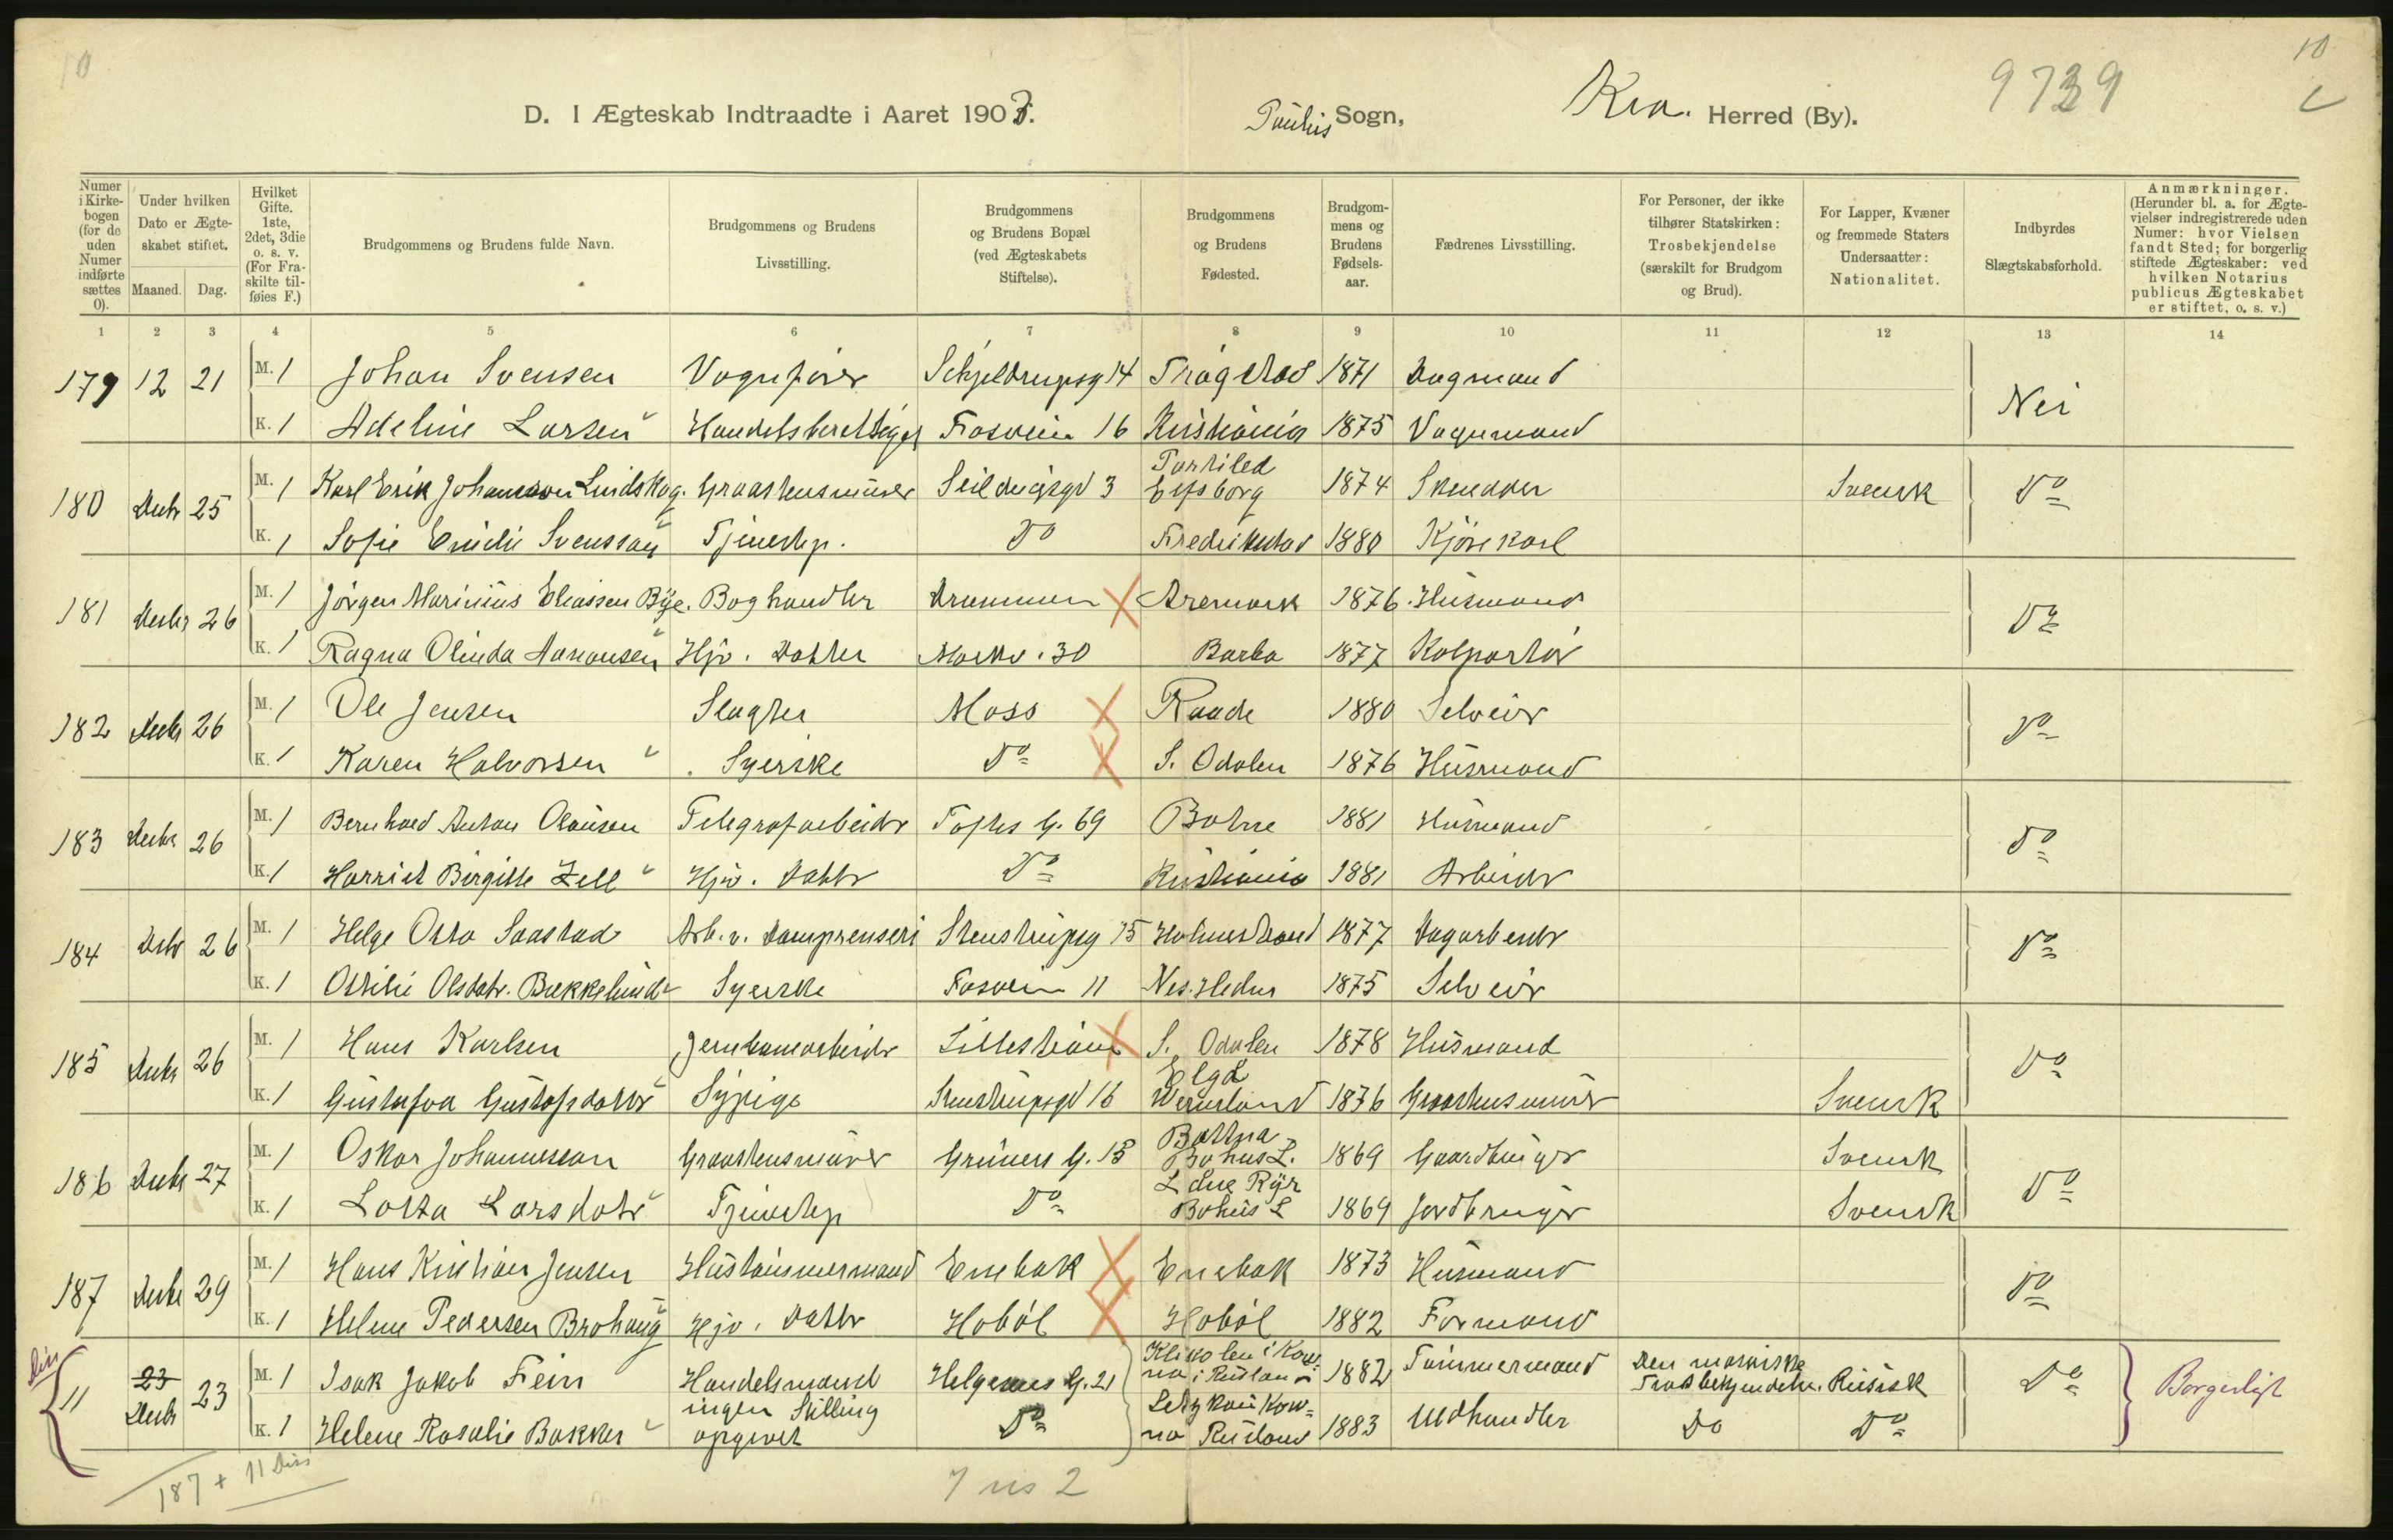 10
10
D. I Ægteskab Indtraadte i Aaret 1903. Paulus Sogn, Kra. Herred (By). 9739
Numer i Kirkebogen (for de uden Numer indførte sættes 0).
Under hvilken Dato er Ægteskabet stiftet.
Maaned. Dag.
Hvilket Gifte. 1ste, 2det, 3die o. s. v. (For Fraskilte tilføies F.)
Brudgommens og Brudens fulde Navn.
Brudgommens og Brudens Livsstilling.
Brudgommens og Brudens Bopæl (ved Ægteskabets Stiftelse).
Brudgommens og Brudens Fødested.
Brudgommens og Brudens Fødselsaar.
Fædrenes Livsstilling.
For Personer, der ikke tilhører Statskirken: Trosbekjendelse (særskilt for Brudgom og Brud).
For Lapper, Kvæner og fremmede Staters Undersaatter: Nationalitet.
Indbyrdes Slægtskabsforhold.
Anmærkninger. (Herunder bl. a. for Ægtevielser indregistrerede uden Numer: hvor Vielsen fandt Sted; for borgerlig stiftede Ægteskaber: ved hvilken Notarius publicus Ægteskabet er stiftet, o. s. v.)
1 2 3 4 5 6 7 8 9 10 11 12 13 14
179 12 21 M. 1 Johan Svensen Vognfører Schjeldrupsg 14 Trøgstad 1871 Dagmand Nei
K. 1 Adeline Larsen Handelsberettiget Fosvein 16 Kristiania 1875 Vognmand
180 Decbr 25 M. 1 Karl Erik Johansson Lindskog. Graastensmurer Seildugsgd 3 Elfsborg 1874 Skrædder Svensk Do
K. 1 Sofie Emilie Svensson Tjenestep. Do Fredrikstad 1880 Kjørekarl
181 Decbr 26 M. 1 Jörgen Marinius Eliassen Bye. Boghandler Drammen Aremark 1876 Husmand Do
K. 1 Ragna Olinda Aanonsen Hjv. Datter Markv. 30 Barbo 1877 Kolportør
182 Decbr 26 M. 1 Ole Jensen Slagter Moss Raade 1880 Selveier Do
K. 1 Karen Halvorsen Syerske Do S. Odalen 1876 Husmand
183 Decbr 26 M. 1 Bernhard Anton Olausen Telegrafarbeider Toftes G. 69 Botne 1881 Husmand Do
K. 1 Harriet Birgitte Zell Hjv. Datter Do Kristiania 1881 Arbeider
184 Decbr 26 M. 1 Helge Otto Saastad Arb. v. Damprenseri Stenstrupsg 15 Holmestrand 1877 Dagarbeider Do
K. 1 Ottilie Olsdatr. Bækkelund Syerske Fosvein 11 Nes. Hedm 1875 Selveier
185 Decbr 26 M. 1 Hans Karlsen Jernbanearbeider Lillestrøm S. Odalen 1878 Husmand Do
K. 1 Gustafva Gustafsdatter Sypige Stenstrupsgd 16 Elgå Wermland 1876 Graastensmurer Svensk
186 Decbr 27 M. 1 Oskar Johannesson Graastensmurer Grüners G. 15 Bottna Bohus L. 1869 Gaardbruger Svensk Do
K. 1 Lotta Larsdatr Tjenestep Do L due Ryr Bohus L 1869 Jordbruger Svensk
187 Decbr 29 M. 1 Hans Kristian Jensen Hustømmermand Enebak Enebak 1873 Husmand Do
K. 1 Helene Pedersen Brohaug Hjv. Datter Hobøl Hobøl 1882 Formand
Diss
11 23 Decbr 23 M. 1 Isak Jakob Fein Handelsmand Helgesens G. 21 Klikolen i Kowno i Rusland 1882 Tømmermand Den mosaiske Trosbekjendelse. Russisk Do Borgerligt
K. 1 Helene Rosalie Bakker ingen Stilling opgivet Do Kowno Rusland 1883 Uldhandler Do Do
187 + 11 Diss
7 us 2